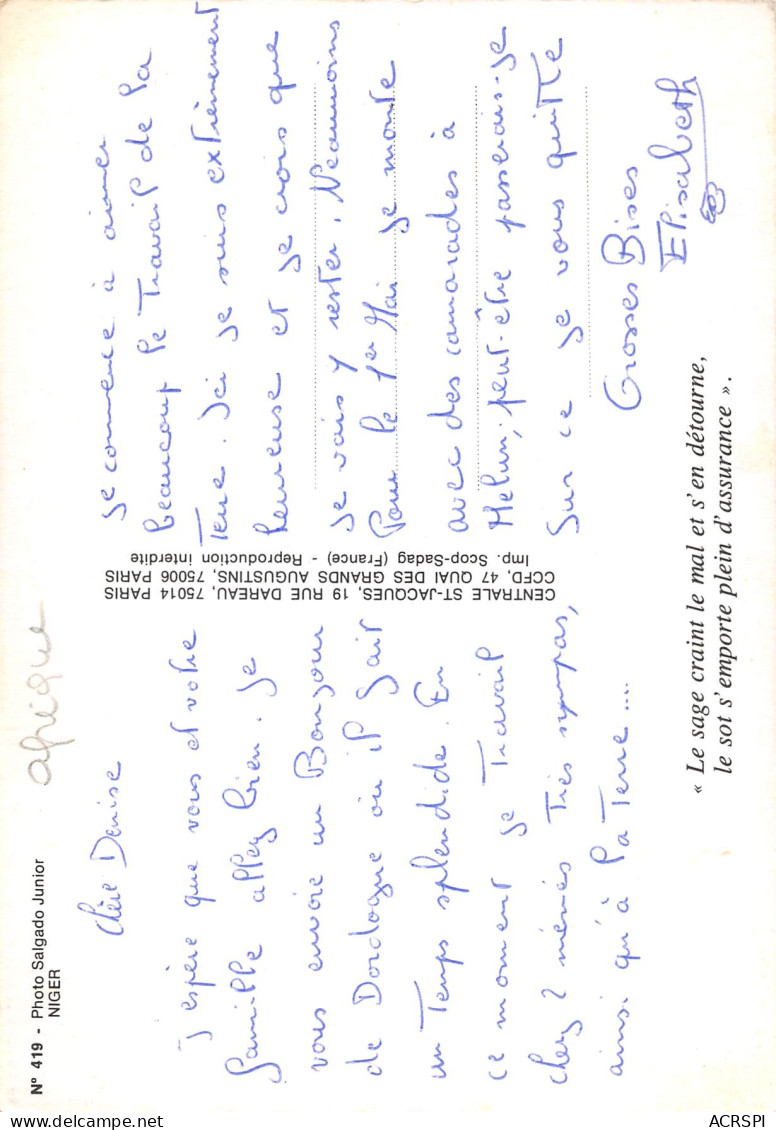 N° 419 - Photo Salgado Junior
NIGER
afrique
Chère Denise
J'espère que vous et votre
famille allez bien. Je
vous envoie un Bonjour
de Dordogne où il fait
un Temps splendide. En
ce moment je Travail
chez 2 mémés Très sympas,
ainsi qu'à la Terre....
CENTRALE ST-JACQUES, 19 RUE DAREAU, 75014 PARIS
CCFD, 47 QUAI DES GRANDS AUGUSTINS, 75006 PARIS
Imp. Scop-Sadag (France) - Reproduction interdite
Je commence à aimer
beaucoup le Travail de la
Terre. Ici je suis extrèmement
heureuse et je crois que
je vais y rester. Neanmoins
Pour le 1er Mai je monte
avec des camarades à
Melun, peut-être passerais-je
Sur ce je vous quitte
Grosses Bises
Elisabeth
« Le sage craint le mal et s'en détourne,
le sot s'emporte plein d'assurance ».
ACRSPI